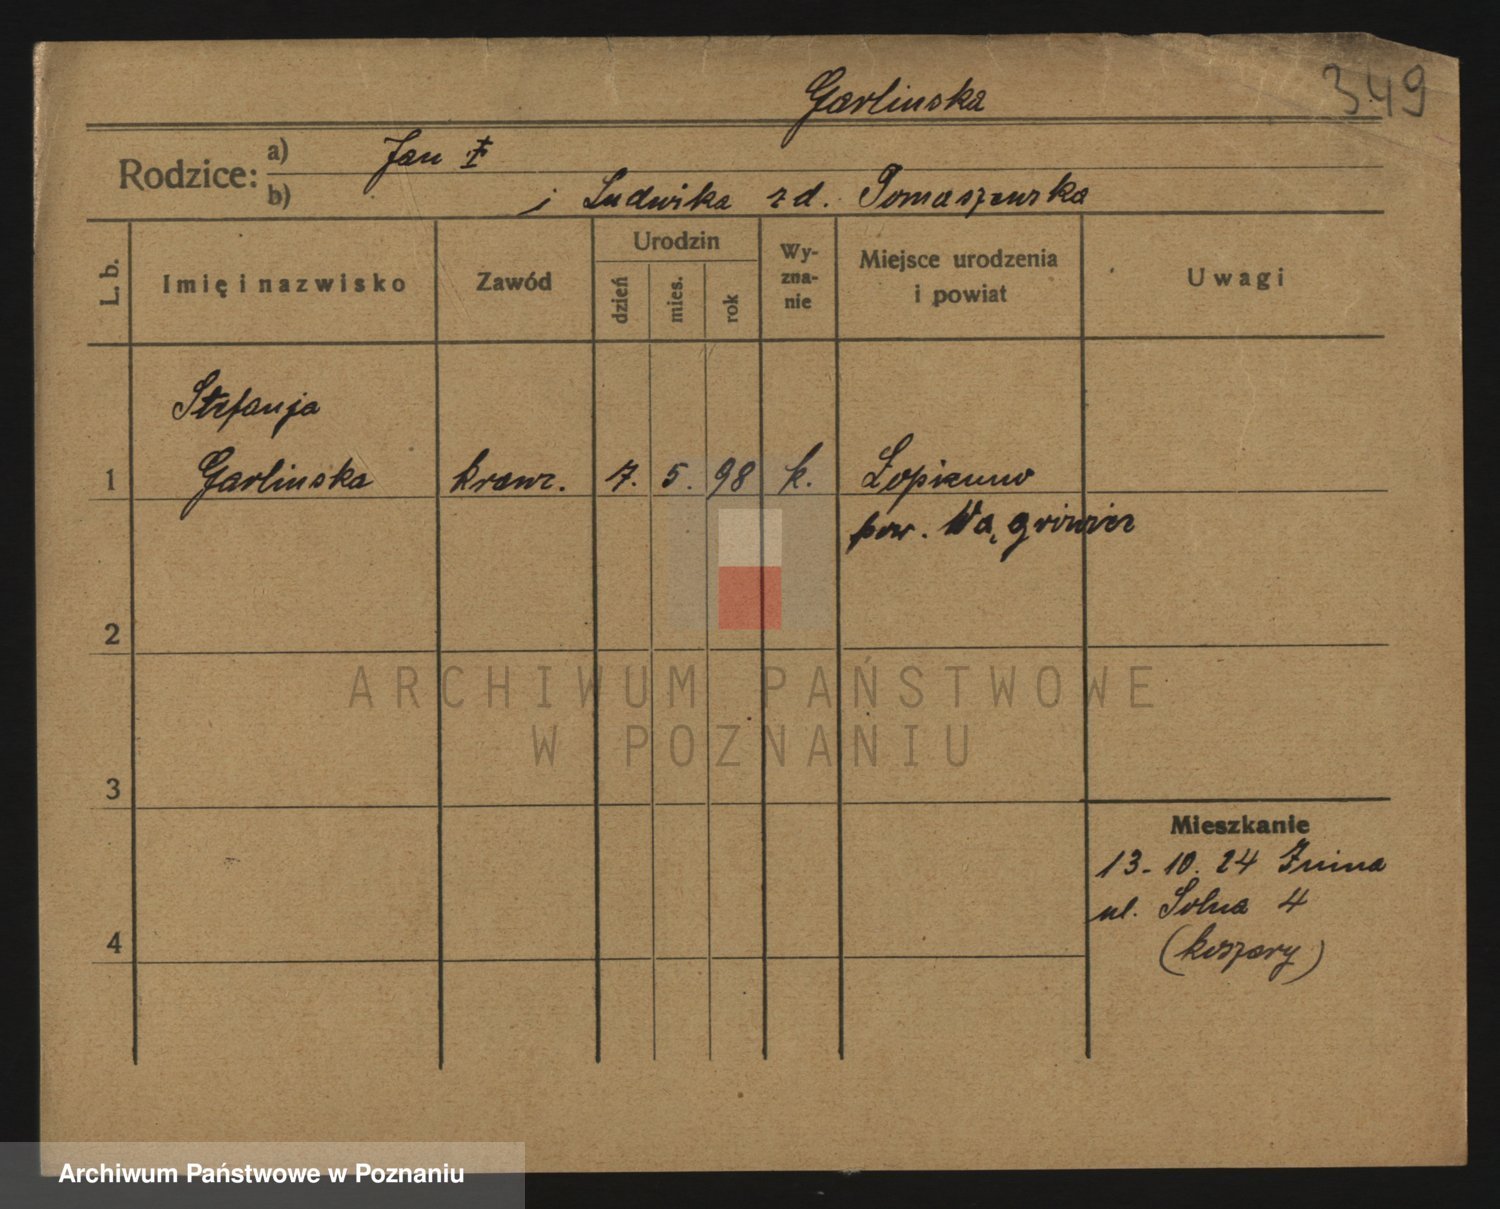 Garlinska
349
Rodzice: a) Jan
b) i Ludwika zd. Tomaszewska
L. b.
Imię i nazwisko
Zawód
Urodzin
dzień
mies.
rok
Wy-
zna-
nie
Miejsce urodzenia
i powiat
Uwagi
Stefanja
1 Garlinska krawc. 7. 5. 98 k. Łopienno
pow. Wągrowiec
2
ARCHIWUM PAŃSTWOWE
W POZNANIU
3
Mieszkanie
13-10.24 Żnina
ul. Solna 4
4
(koszary)
Archiwum Państwowe w Poznaniu